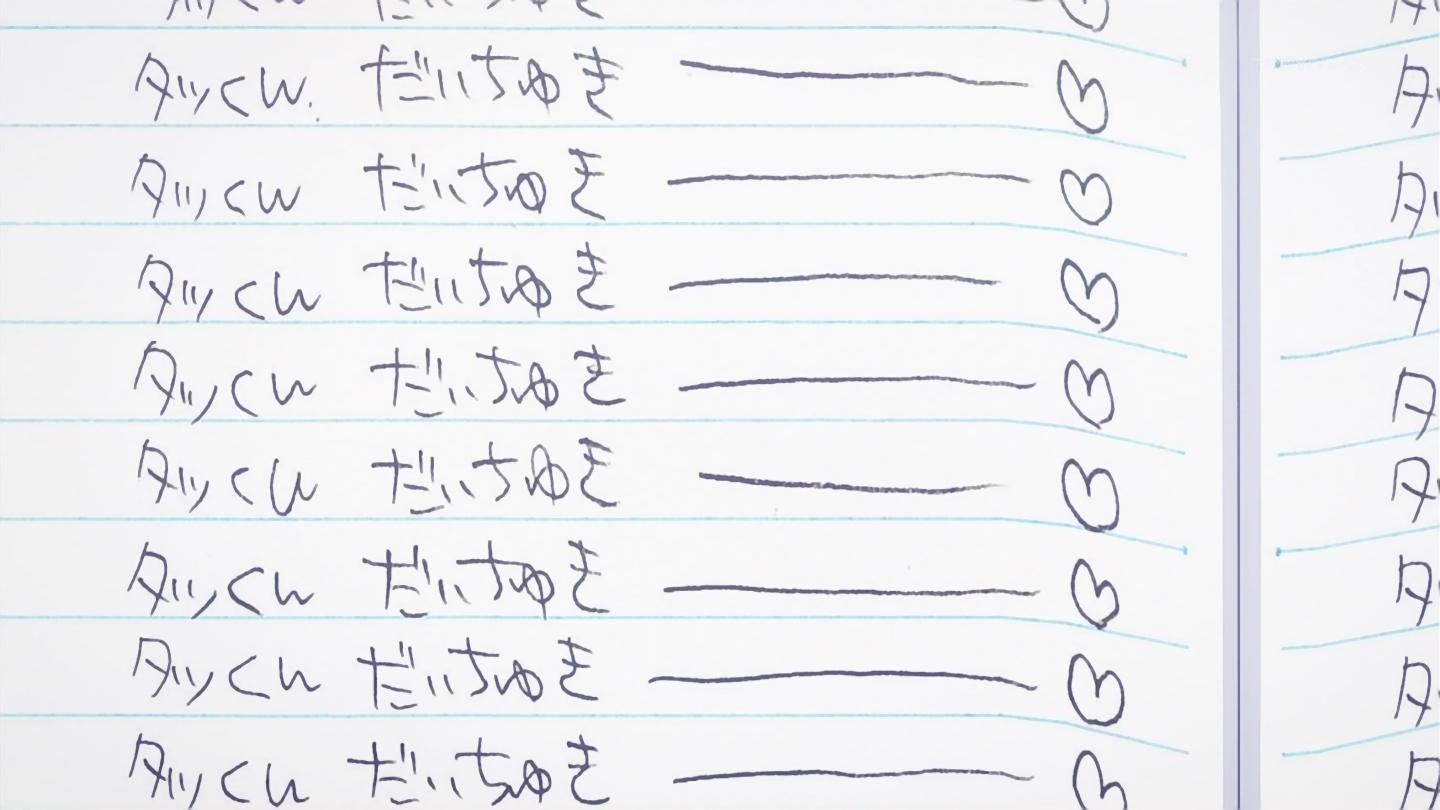 タッくん だいちゅき ――― ♡
タッくん だいちゅき ――― ♡
タッくん だいちゅき ――― ♡
タッくん だいちゅき ――― ♡
タッくん だいちゅき ――― ♡
タッくん だいちゅき ――― ♡
タッくん だいちゅき ――― ♡
タッくん だいちゅき ――― ♡